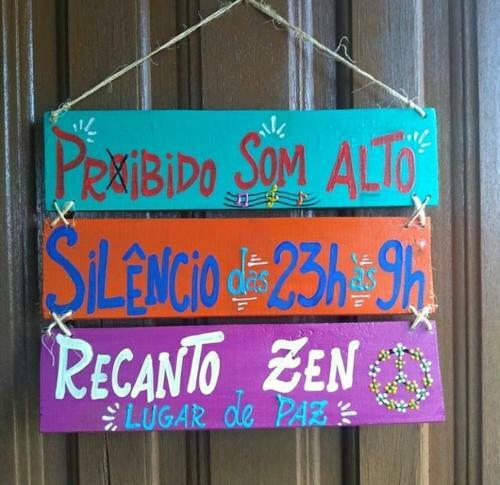 PROIBIDO SOM ALTO
SiLÊNCiO das 23h às 9h
RECANTO ZEN
LUGAR de PAZ